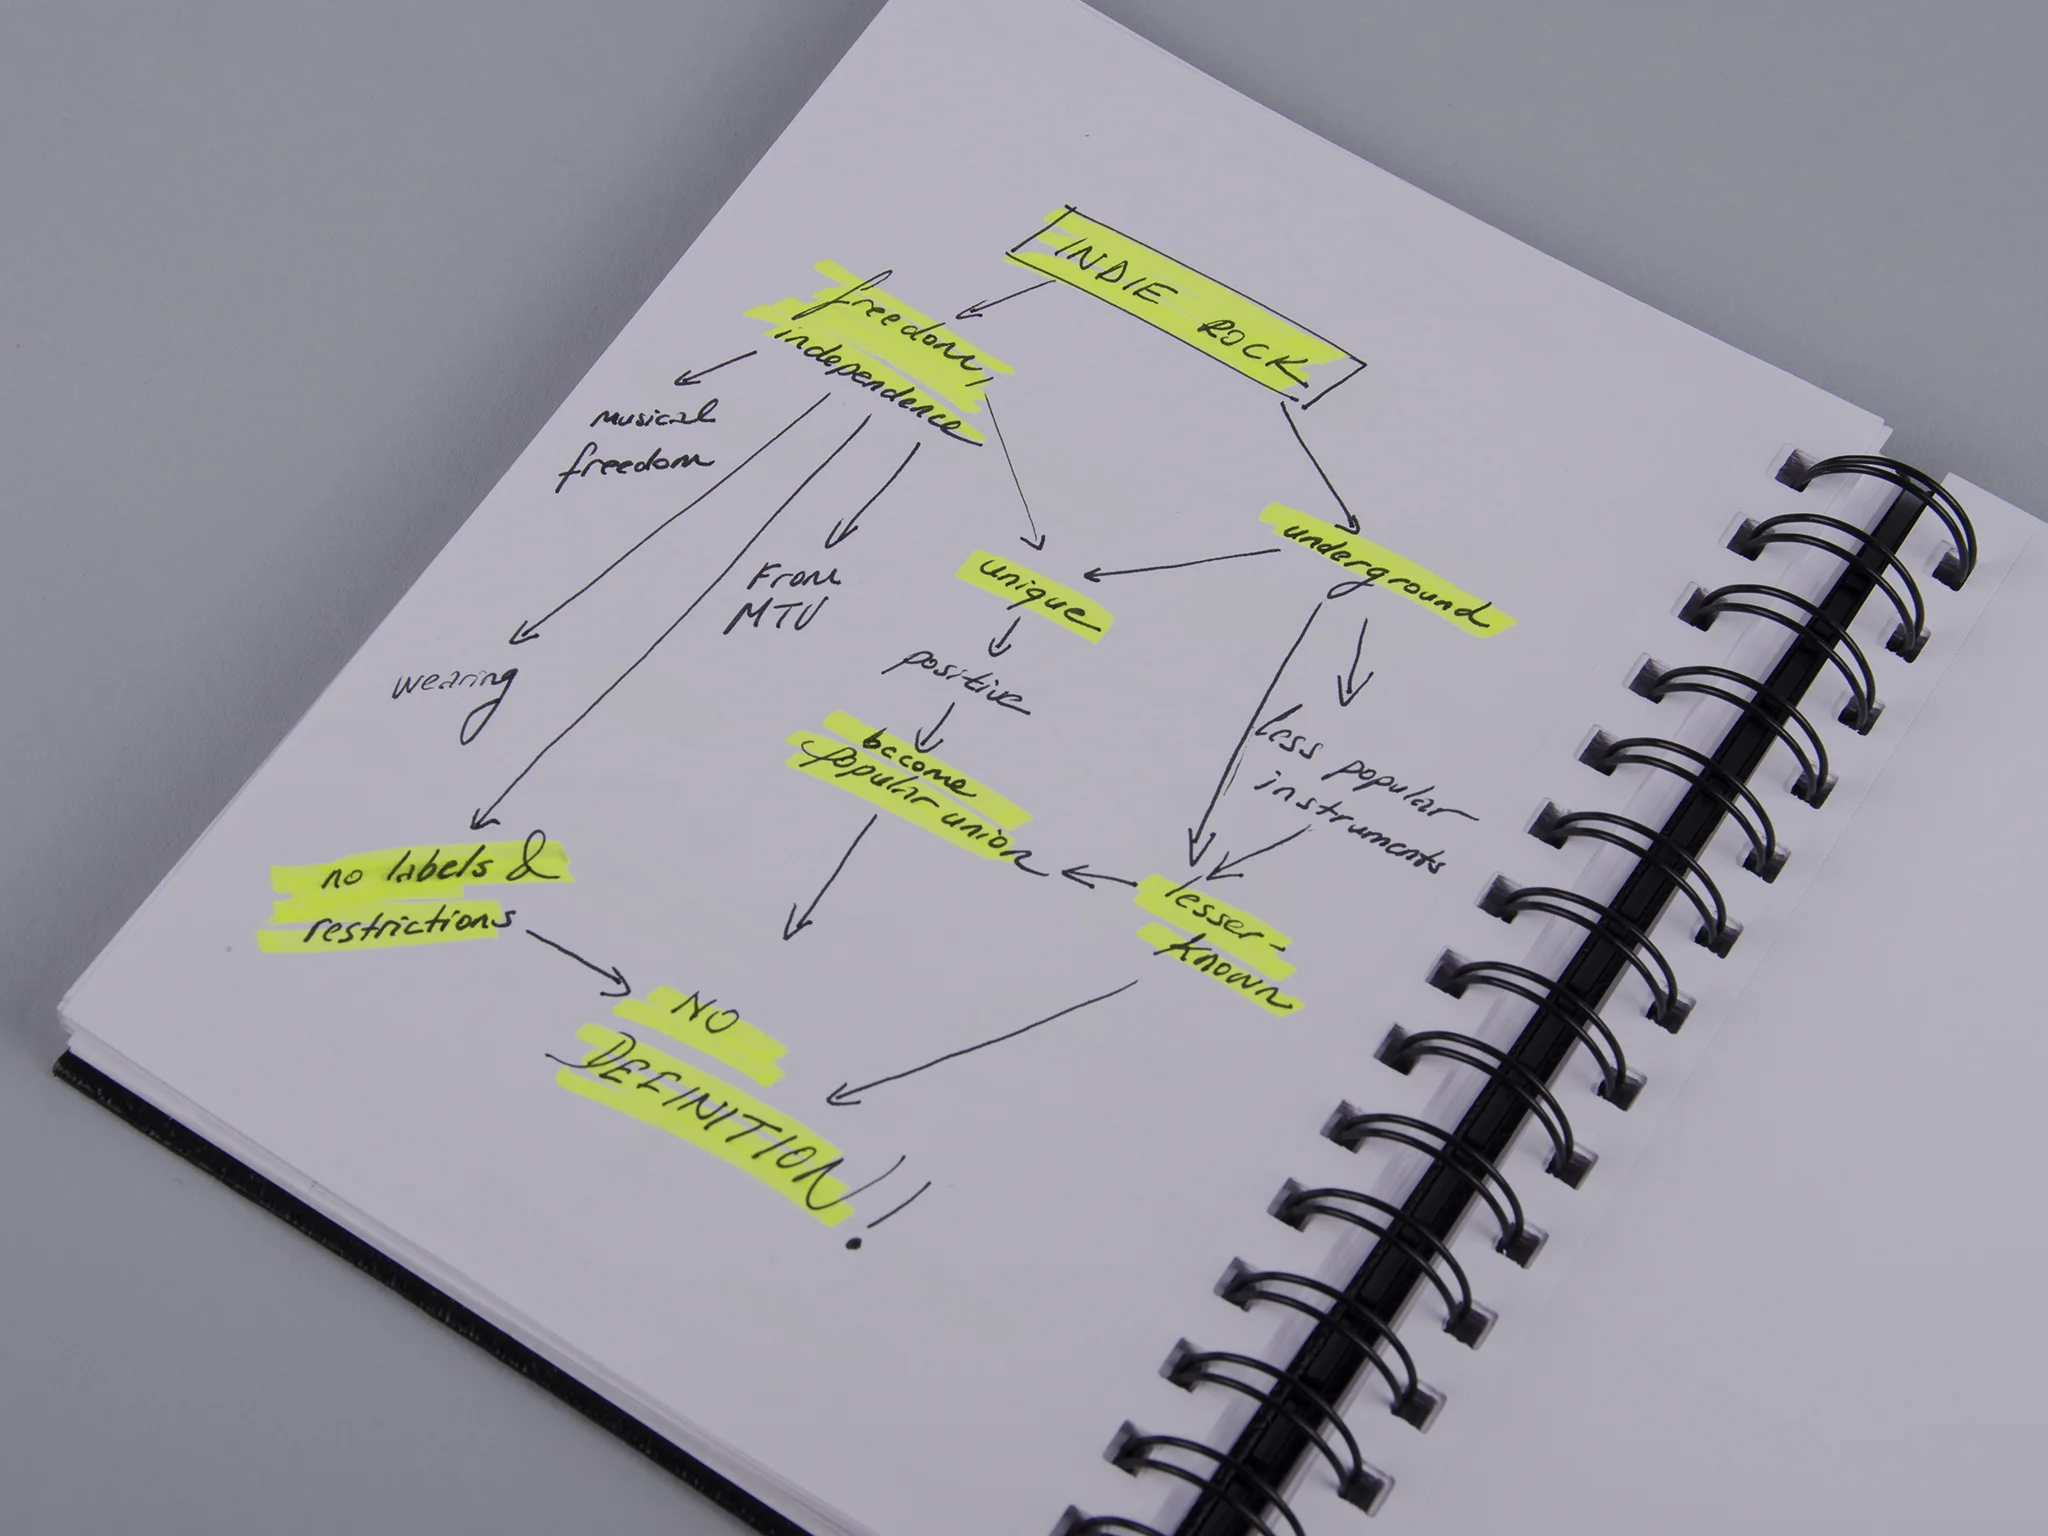 INDIE ROCK
freedom,
independence
musical
freedom
From
MTV
unique
underground
wearing
positive
become
popular union
less popular
instruments
no labels &
restrictions
lesser-
known
NO
DEFINITION!!